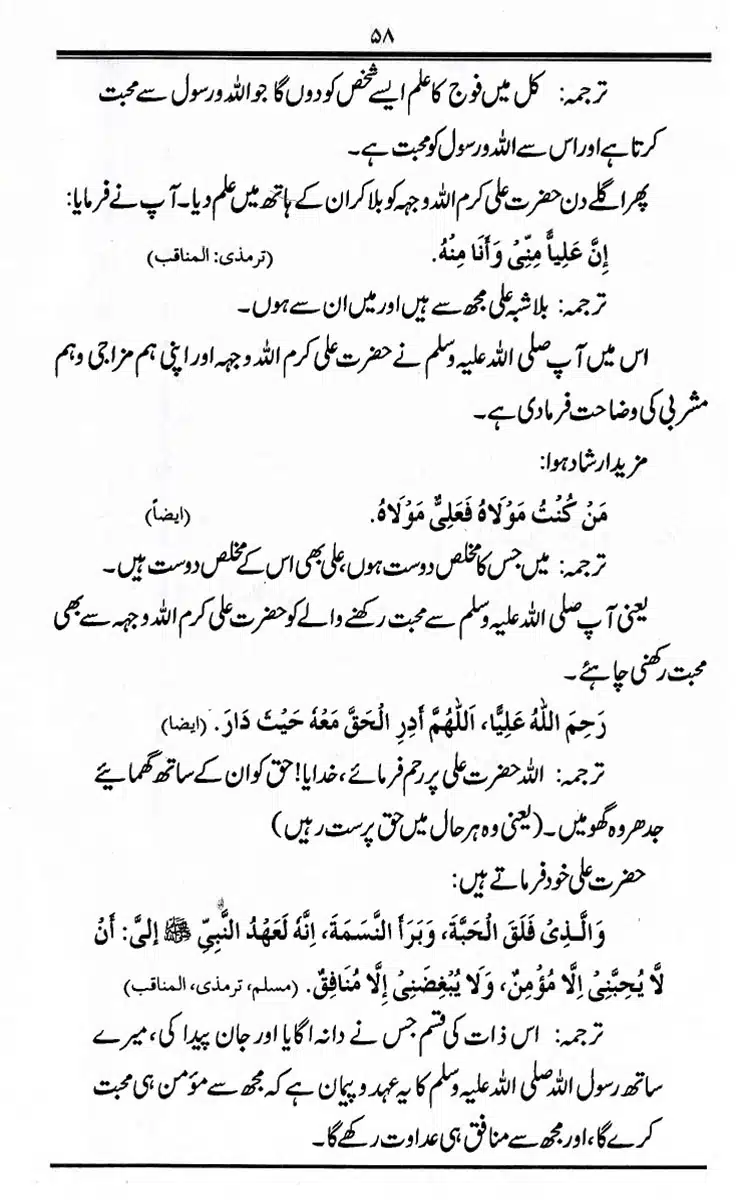 ۵۸
ترجمہ: کل میں فوج کا علم ایسے شخص کو دوں گا جو اللہ ورسول سے محبت
کرتا ہے اور اس سے اللہ ورسول کو محبت ہے۔
پھر اگلے دن حضرت علی کرم اللہ وجہہ کو بلا کر ان کے ہاتھ میں علم دیا۔ آپ نے فرمایا:
إِنَّ عَلِیاًّ مِنِّیْ وَأَنَا مِنْهُ. (ترمذی: المناقب)
ترجمہ: بلا شبہ علی مجھ سے ہیں اور میں ان سے ہوں۔
اس میں آپ صلی اللہ علیہ وسلم نے حضرت علی کرم اللہ وجہہ اور اپنی ہم مزاجی وہم
مشربی کی وضاحت فرمادی ہے۔
مزید ارشاد ہوا:
مَنْ کُنْتُ مَوْلَاهُ فَعَلِیٌّ مَوْلَاهُ. (ایضاً)
ترجمہ: میں جس کا مخلص دوست ہوں، علی بھی اس کے مخلص دوست ہیں۔
یعنی آپ صلی اللہ علیہ وسلم سے محبت رکھنے والے کو حضرت علی کرم اللہ وجہہ سے بھی
محبت رکھنی چاہئے۔
رَحِمَ اللّٰهُ عَلِیًّا، اَللّٰهُمَّ أَدِرِ الْحَقَّ مَعَهٗ حَیْثَ دَارَ. (ایضا)
ترجمہ: اللہ حضرت علی پر رحم فرمائے، خدایا! حق کو ان کے ساتھ گھمایئے
جدھر وہ گھومیں۔ (یعنی وہ ہر حال میں حق پرست رہیں)
حضرت علی خود فرماتے ہیں:
وَالَّـذِیْ فَلَقَ الْحَبَّةَ، وَبَرَأَ النَّسَمَةَ، اِنَّهٗ لَعَهْدُ النَّبِیِّ ﷺ إِلیَّ: أَنْ
لَّا یُحِبَّنِیْ اِلَّا مُؤْمِنٌ، وَلَا یُبْغِضَنِیْ إِلَّا مُنَافِقٌ. (مسلم، ترمذی، المناقب)
ترجمہ: اس ذات کی قسم جس نے دانہ اگایا اور جان پیدا کی، میرے
ساتھ رسول اللہ صلی اللہ علیہ وسلم کا یہ عہد و پیمان ہے کہ مجھ سے مؤمن ہی محبت
کرے گا، اور مجھ سے منافق ہی عداوت رکھے گا۔